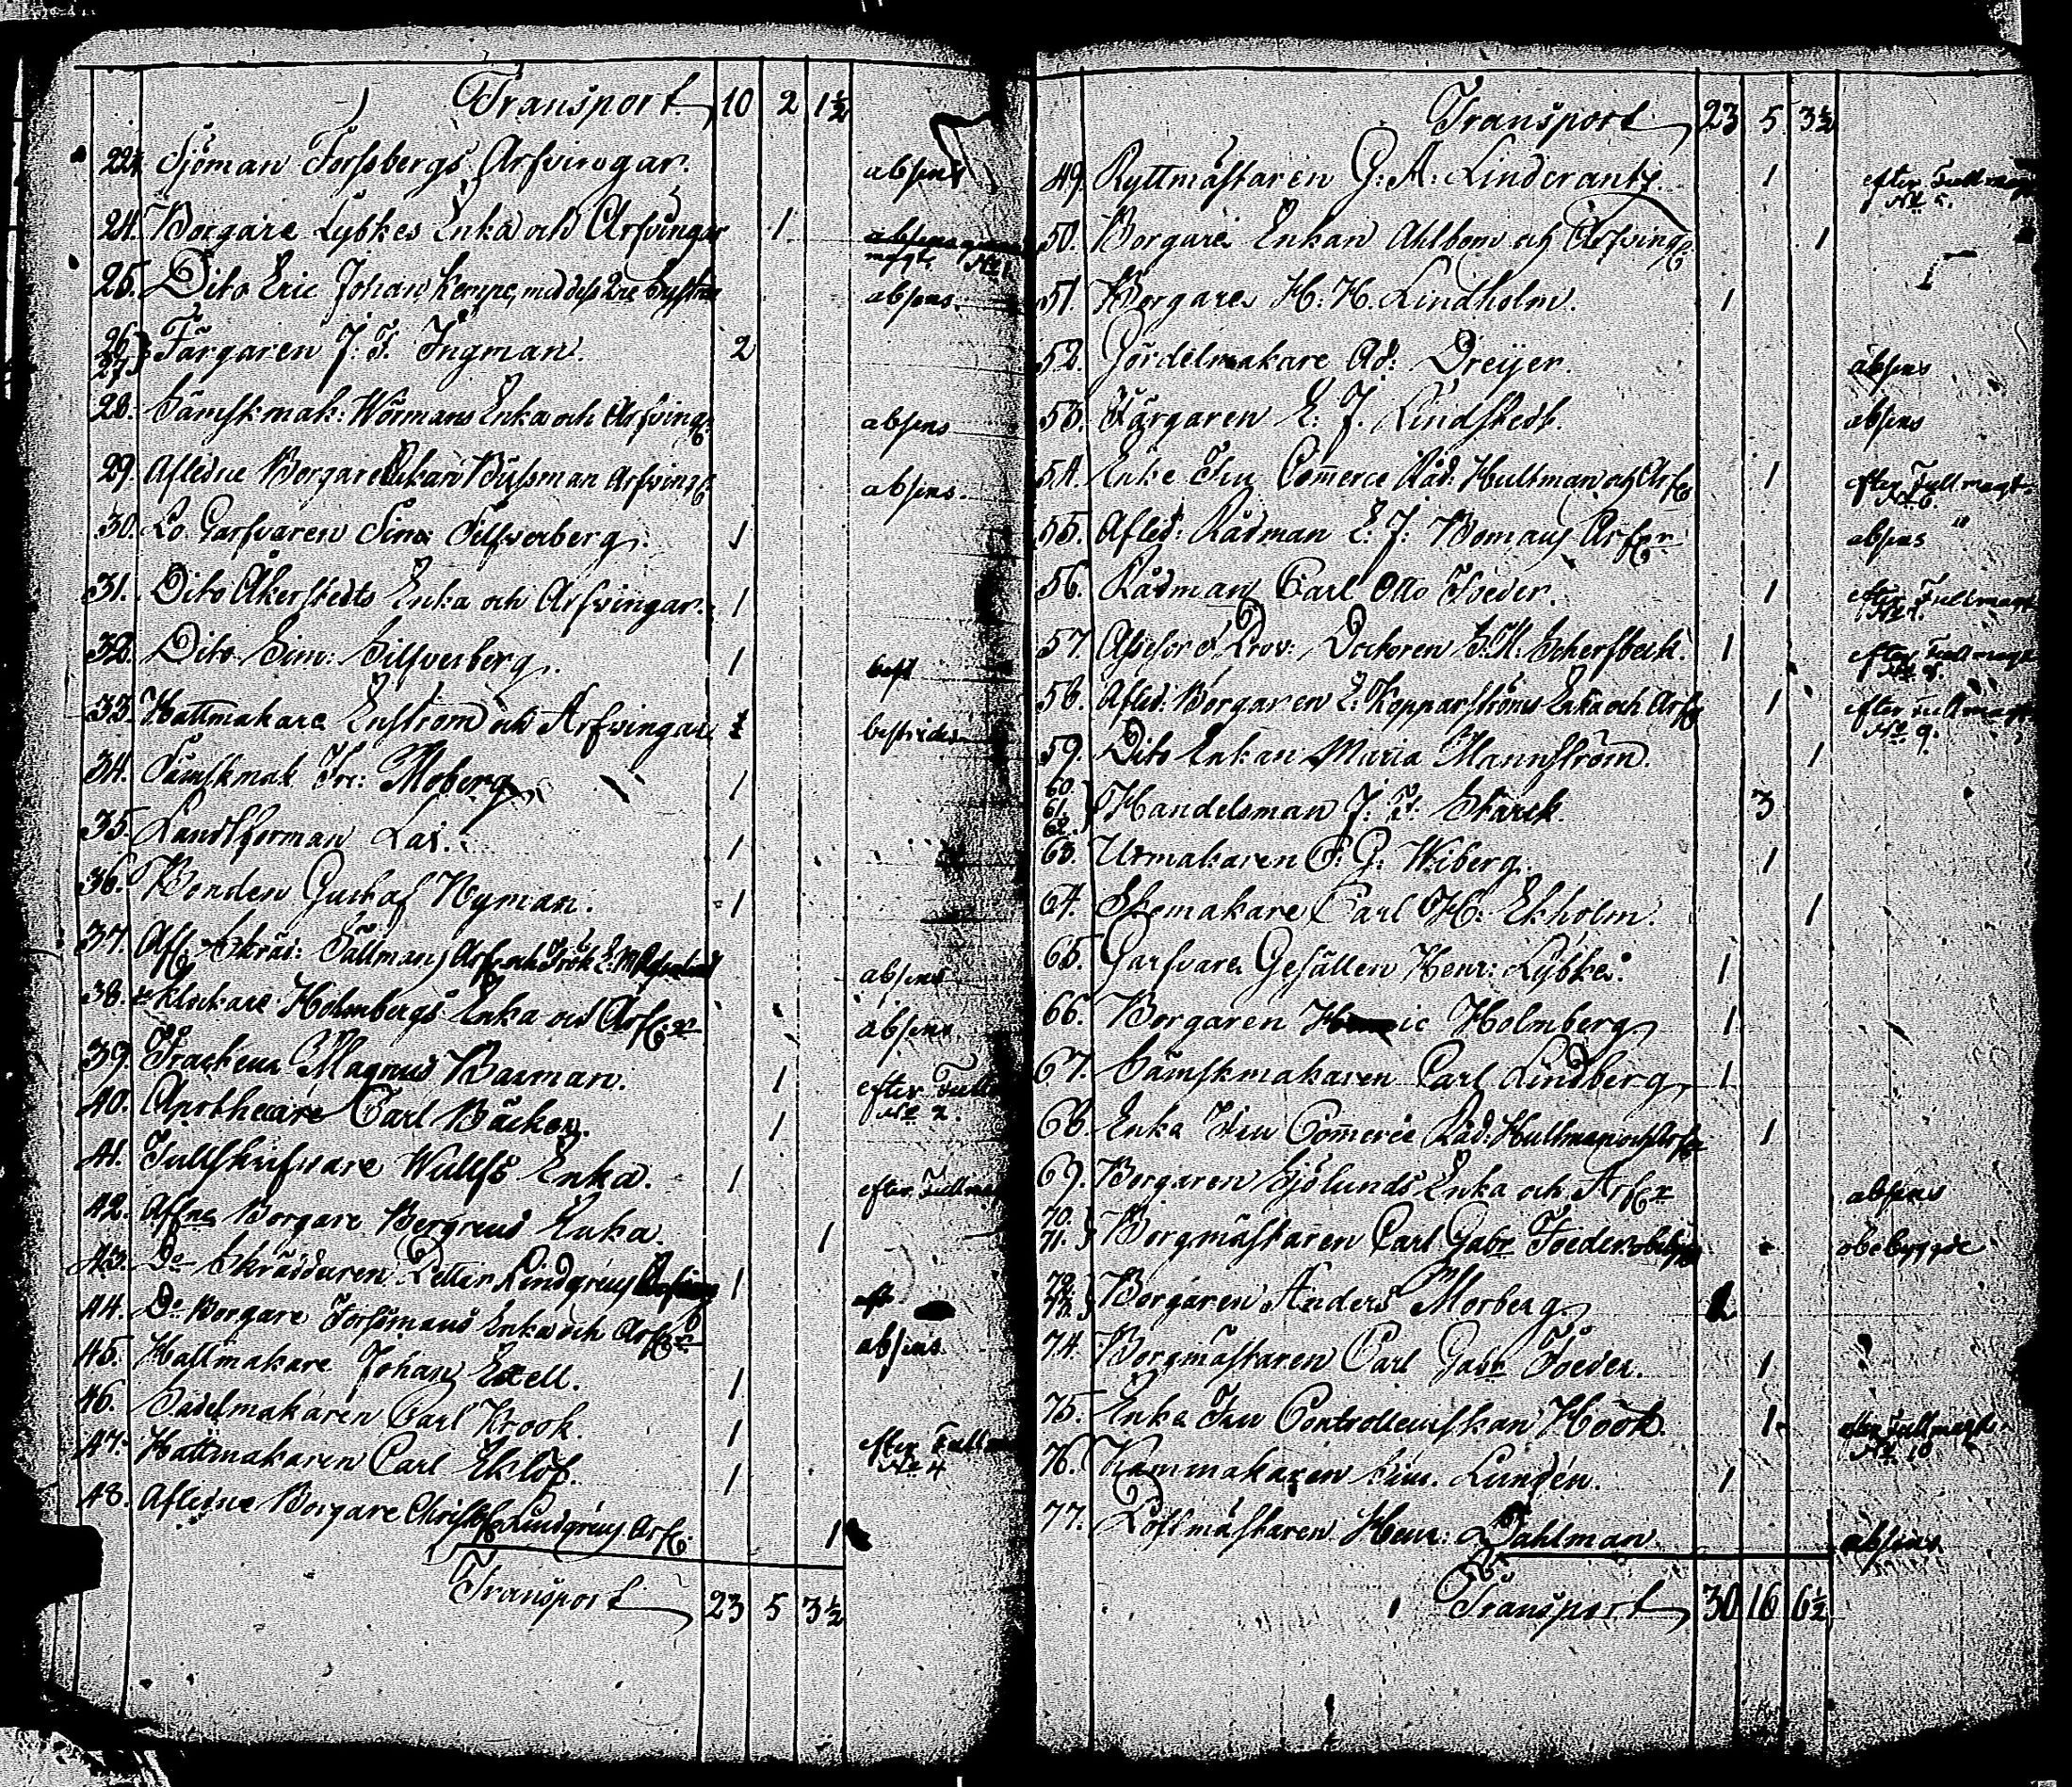 Transport 10 2 1½
22. Sjöman Forssbergs Arfvingar. absens
24. Borgare Lybkes Enka och Arfvingar 1
25. Dito Eric Johan Kempe, med dess absens.
26. 27. Färgaren J: F: Ingman. 2
28. Sämskmak: Wörmans Enka och Arfving: absens
29. Afledne Borgare Enkan Bussman Arfving: absens.
30. Lo Garfvaren Sim: Silfverberg. 1
31. Dito Åkerstedts Enka och Arfvingar. 1
32. Dito Sim: Silfverberg. 1
33. Hattmakare Enström och Arfvingar 1 bestrides
34. Sämskmak Fre: Moberg 1
35. Landtsforman Lax. 1
36. Bonden Gustaf Nyman. 1
37. Afl. Skräd: Tällmans Arf: och Frök absens
38. Klockare Holmbergs Enka och Arf: absens
39. Trackeur Magnus Barman. 1 efter Fullm
No 2.
40. Apothecare Carl Bäcker. 1
41. Tullskrifvare Wulffs Enka. 1 efter Fullm
42. Afne Borgare Bergrens Enka. 1
43. Do Skräddaren Petter Lindgrens 1
44. Do Borgare Forssmans Enka och Arf: absens
45. Hattmakare Johan Exell. 1
46. Sadelmakaren Carl Krook. 1
47. Hattmakaren Carl Eklöf. 1 efter Fullm
No 4
48. Afledne Borgare Christof Lindgrens Arf: 1
Transport 23 5 3½
Transport 23 5 3½
49. Ryttmästaren G: A: Linderantz. 1 efter Fullmagt
No 5.
50. Borgare Enkan Ahlbom och Arfving: 1
51. Borgare H: H: Lindholm. 1
52. Gördelmakare Ad: Dreijer. absens
53. Färgaren E: J. Lindstedt. absens
54. Enke Fru Commerce Råd: Hultman och Arf: 1 efter Fullmagt
No 6.
55. Afled: Rådman E: J: Bomans Arf: absens
56. Rådman Carl Otto Foeder. 1 efter Fullmagt
No 7.
57. Assessor & Prov: Doctoren Scherfbeck. 1 efter Fullmagt
No 8.
58. Afled: Borgaren E: Kopparströms Enka och Arf: 1 efter Fullmagt
No 9.
59. Dito Enkan Maria Mannström. 1
60. 61. 62. Handelsman J: F: Starck. 3
63. Urmakaren P: G: Wiberg. 1
64. Skomakare Carl H: Ekholm. 1
65. Garfvare Gesällen Henr: Lybke. 1
66. Borgaren Holmberg 1
67. Sämskmakaren Carl Lindberg 1
68. Enka Fru Commerce Råd: Hultman och Arf: 1
69. Borgaren Sjölunds Enka och Arf: absens
70. 71. Borgmästaren Carl Gabr Foeder obebyggde
72. 73. Borgaren Anders Morberg 2
74. Borgmästaren Carl Gabr Foeder. 1
75. Enka Fru Controlleurskan Höök. 1 efter Fullmagt
No 10
76. Kammakaren Sim. Lundén. 1
77. Postmästaren Henr: Dahlman absens
Transport 30 16 6½